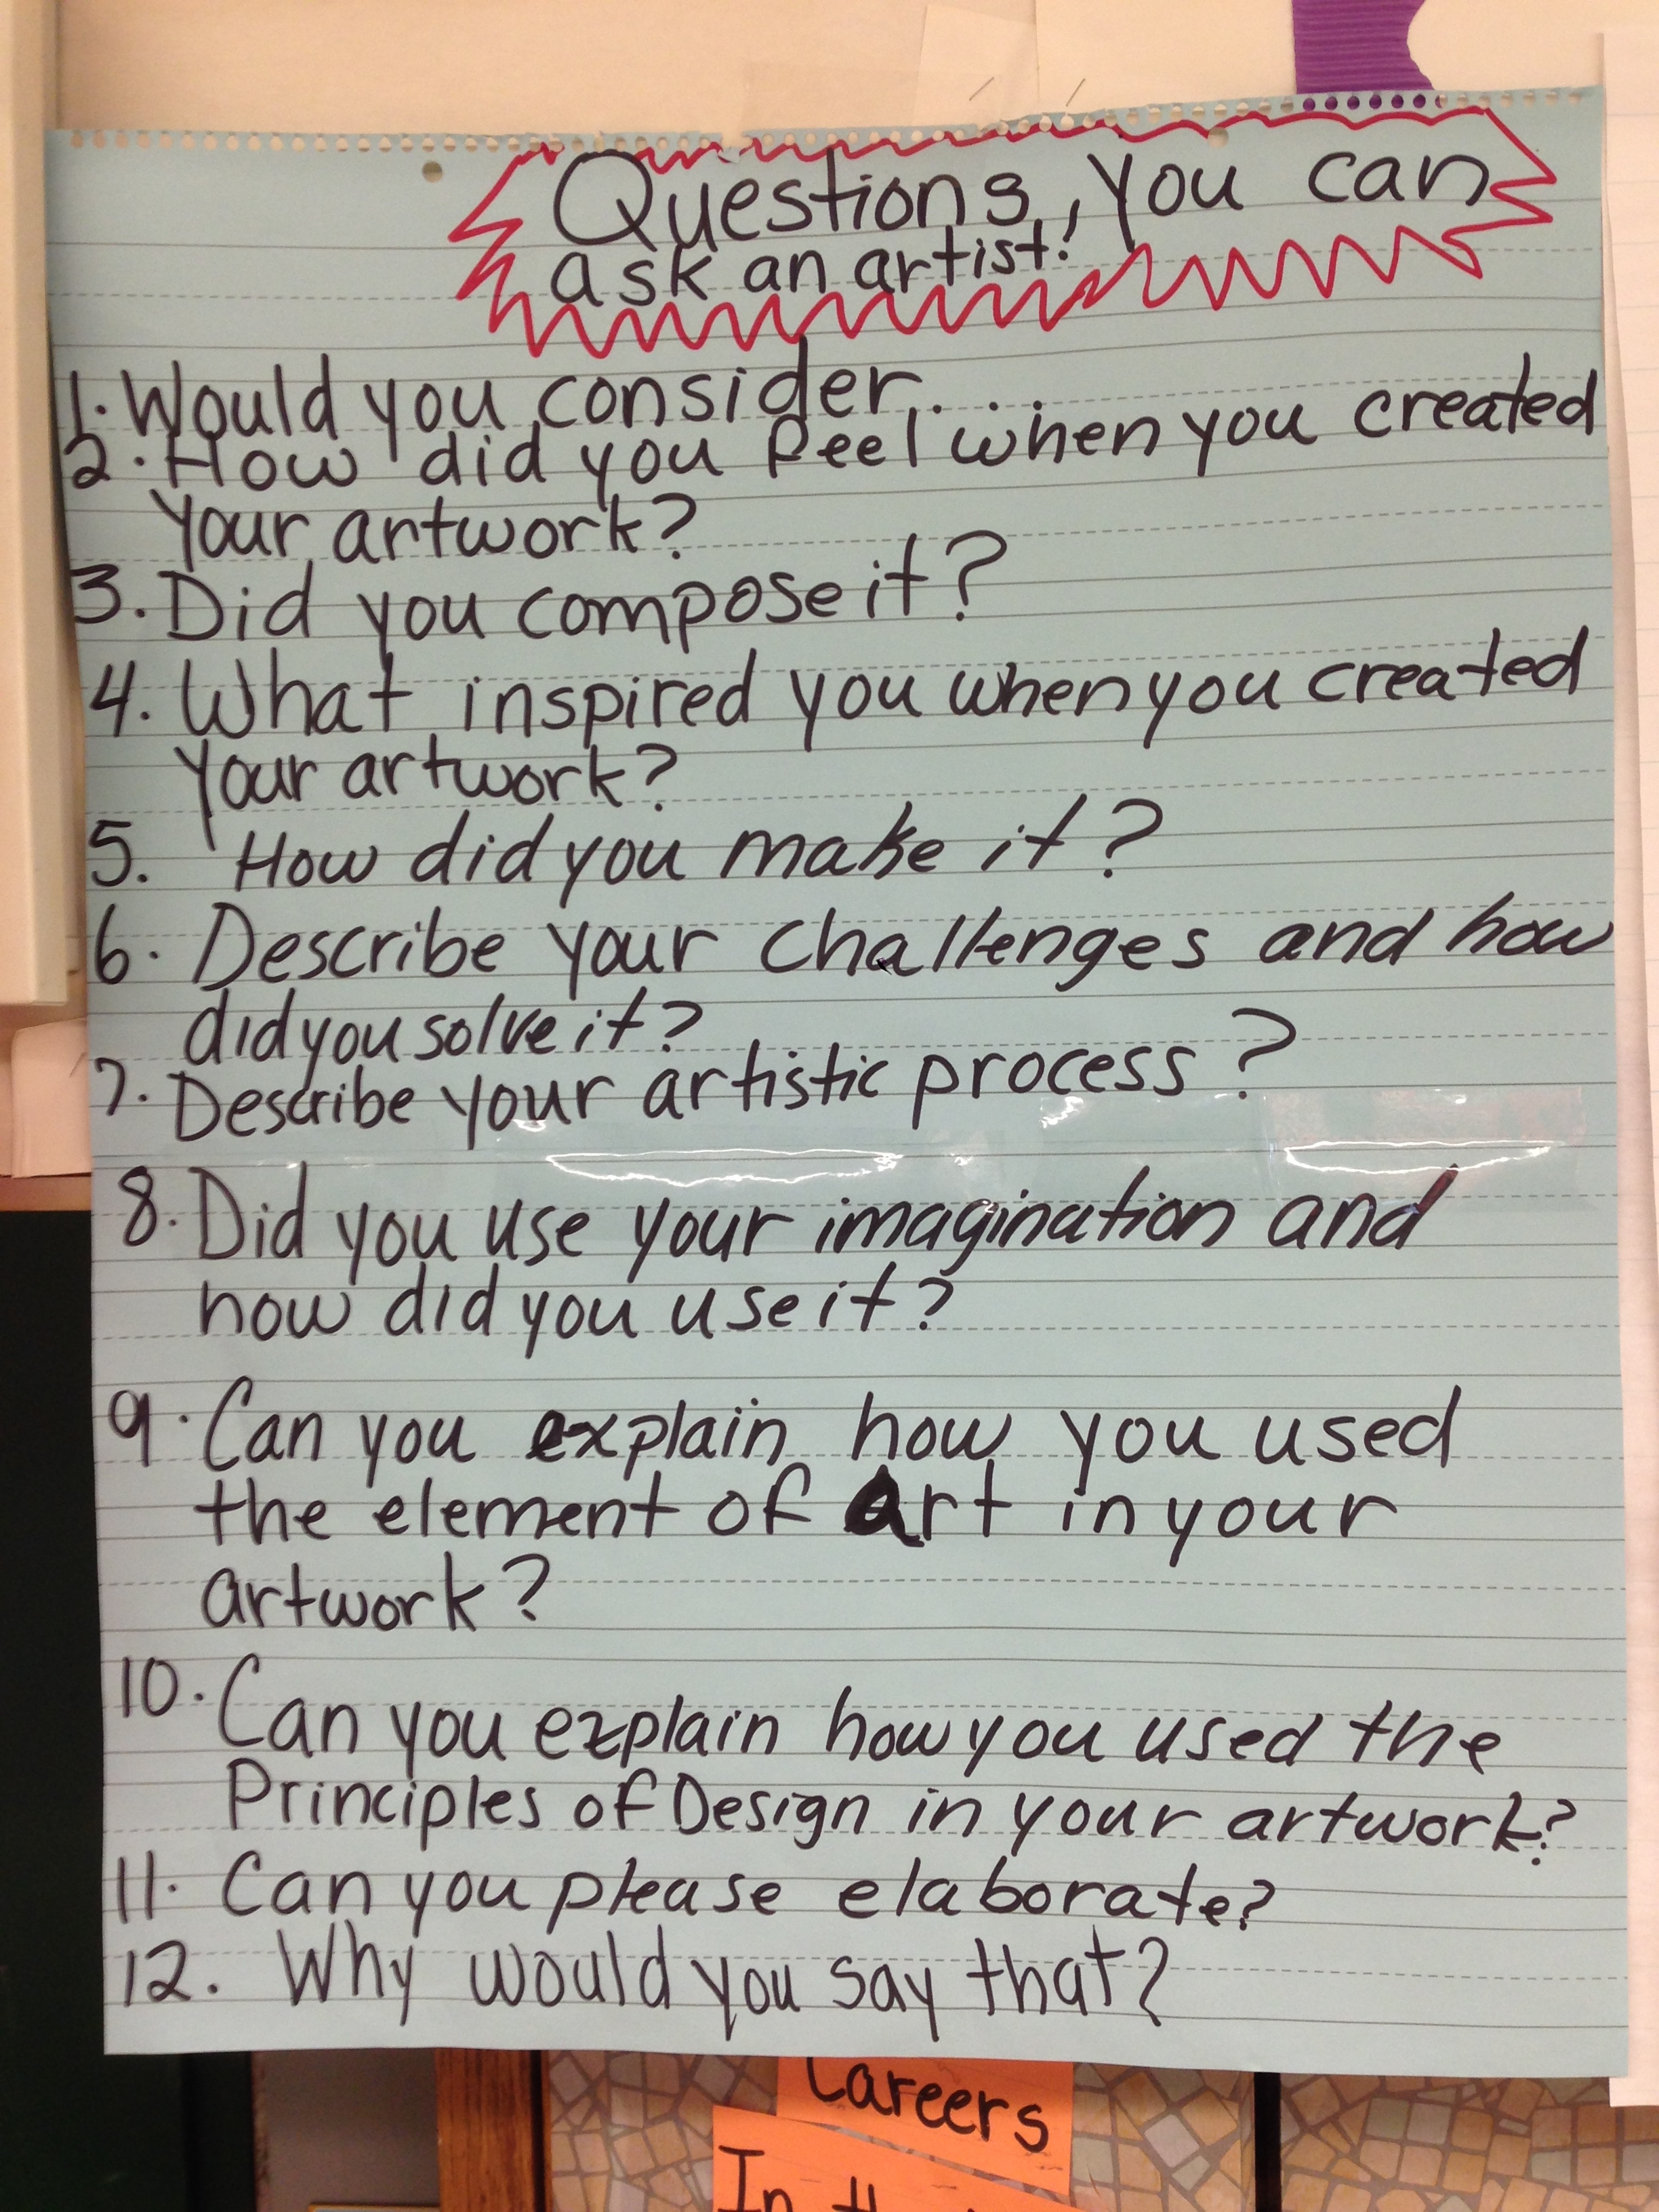 Questions, you can
ask an artist!
1. Would you consider....
2. How did you feel when you created
your artwork?
3. Did you compose it?
4. What inspired you when you created
your artwork?
5. How did you make it?
6. Describe your challenges and how
did you solve it?
7. Describe your artistic process?
8. Did you use your imagination and
how did you use it?
9. Can you explain how you used
the element of art in your
artwork?
10. Can you explain how you used the
Principles of Design in your artwork?
11. Can you please elaborate?
12. Why would you say that?
Careers
In